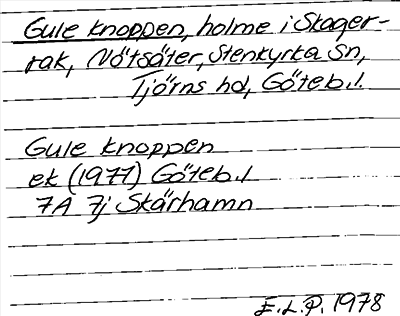 Gule knoppen, holme i Skager-
rak, Nötsäter, Stenkyrka Sn,
Tjörns hd, Göteb.l.
Gule knoppen
ek (1977) Göteb.l
7A 7j Skärhamn
E.L.P. 1978